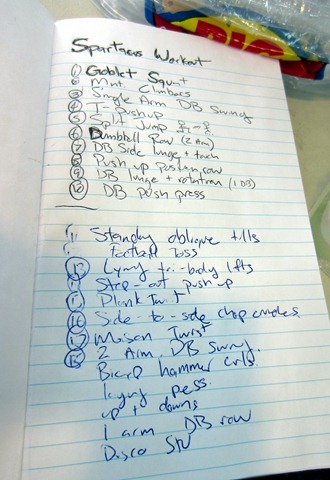 BIG
Spartacus Workout
① Goblet Squat
② Mnt. Climbers
③ Single Arm DB Swing
④ T-Pushup
⑤ Split Jump
⑥ Dumbbell Row (2 Arm)
⑦ DB Side lunge + touch
⑧ Push up position row
⑨ DB lunge + rotation (1 DB)
⑩ DB push press
11 Standing oblique
football toss
⑬ Lying tri-body lifts
Step-out push up
Plank Twist
⑯ Side-to-side chop
⑰ Twist
⑱ 2 Arm DB Swing.
Bicep hammer curls.
lying press
up + downs
1 arm DB row
Disco